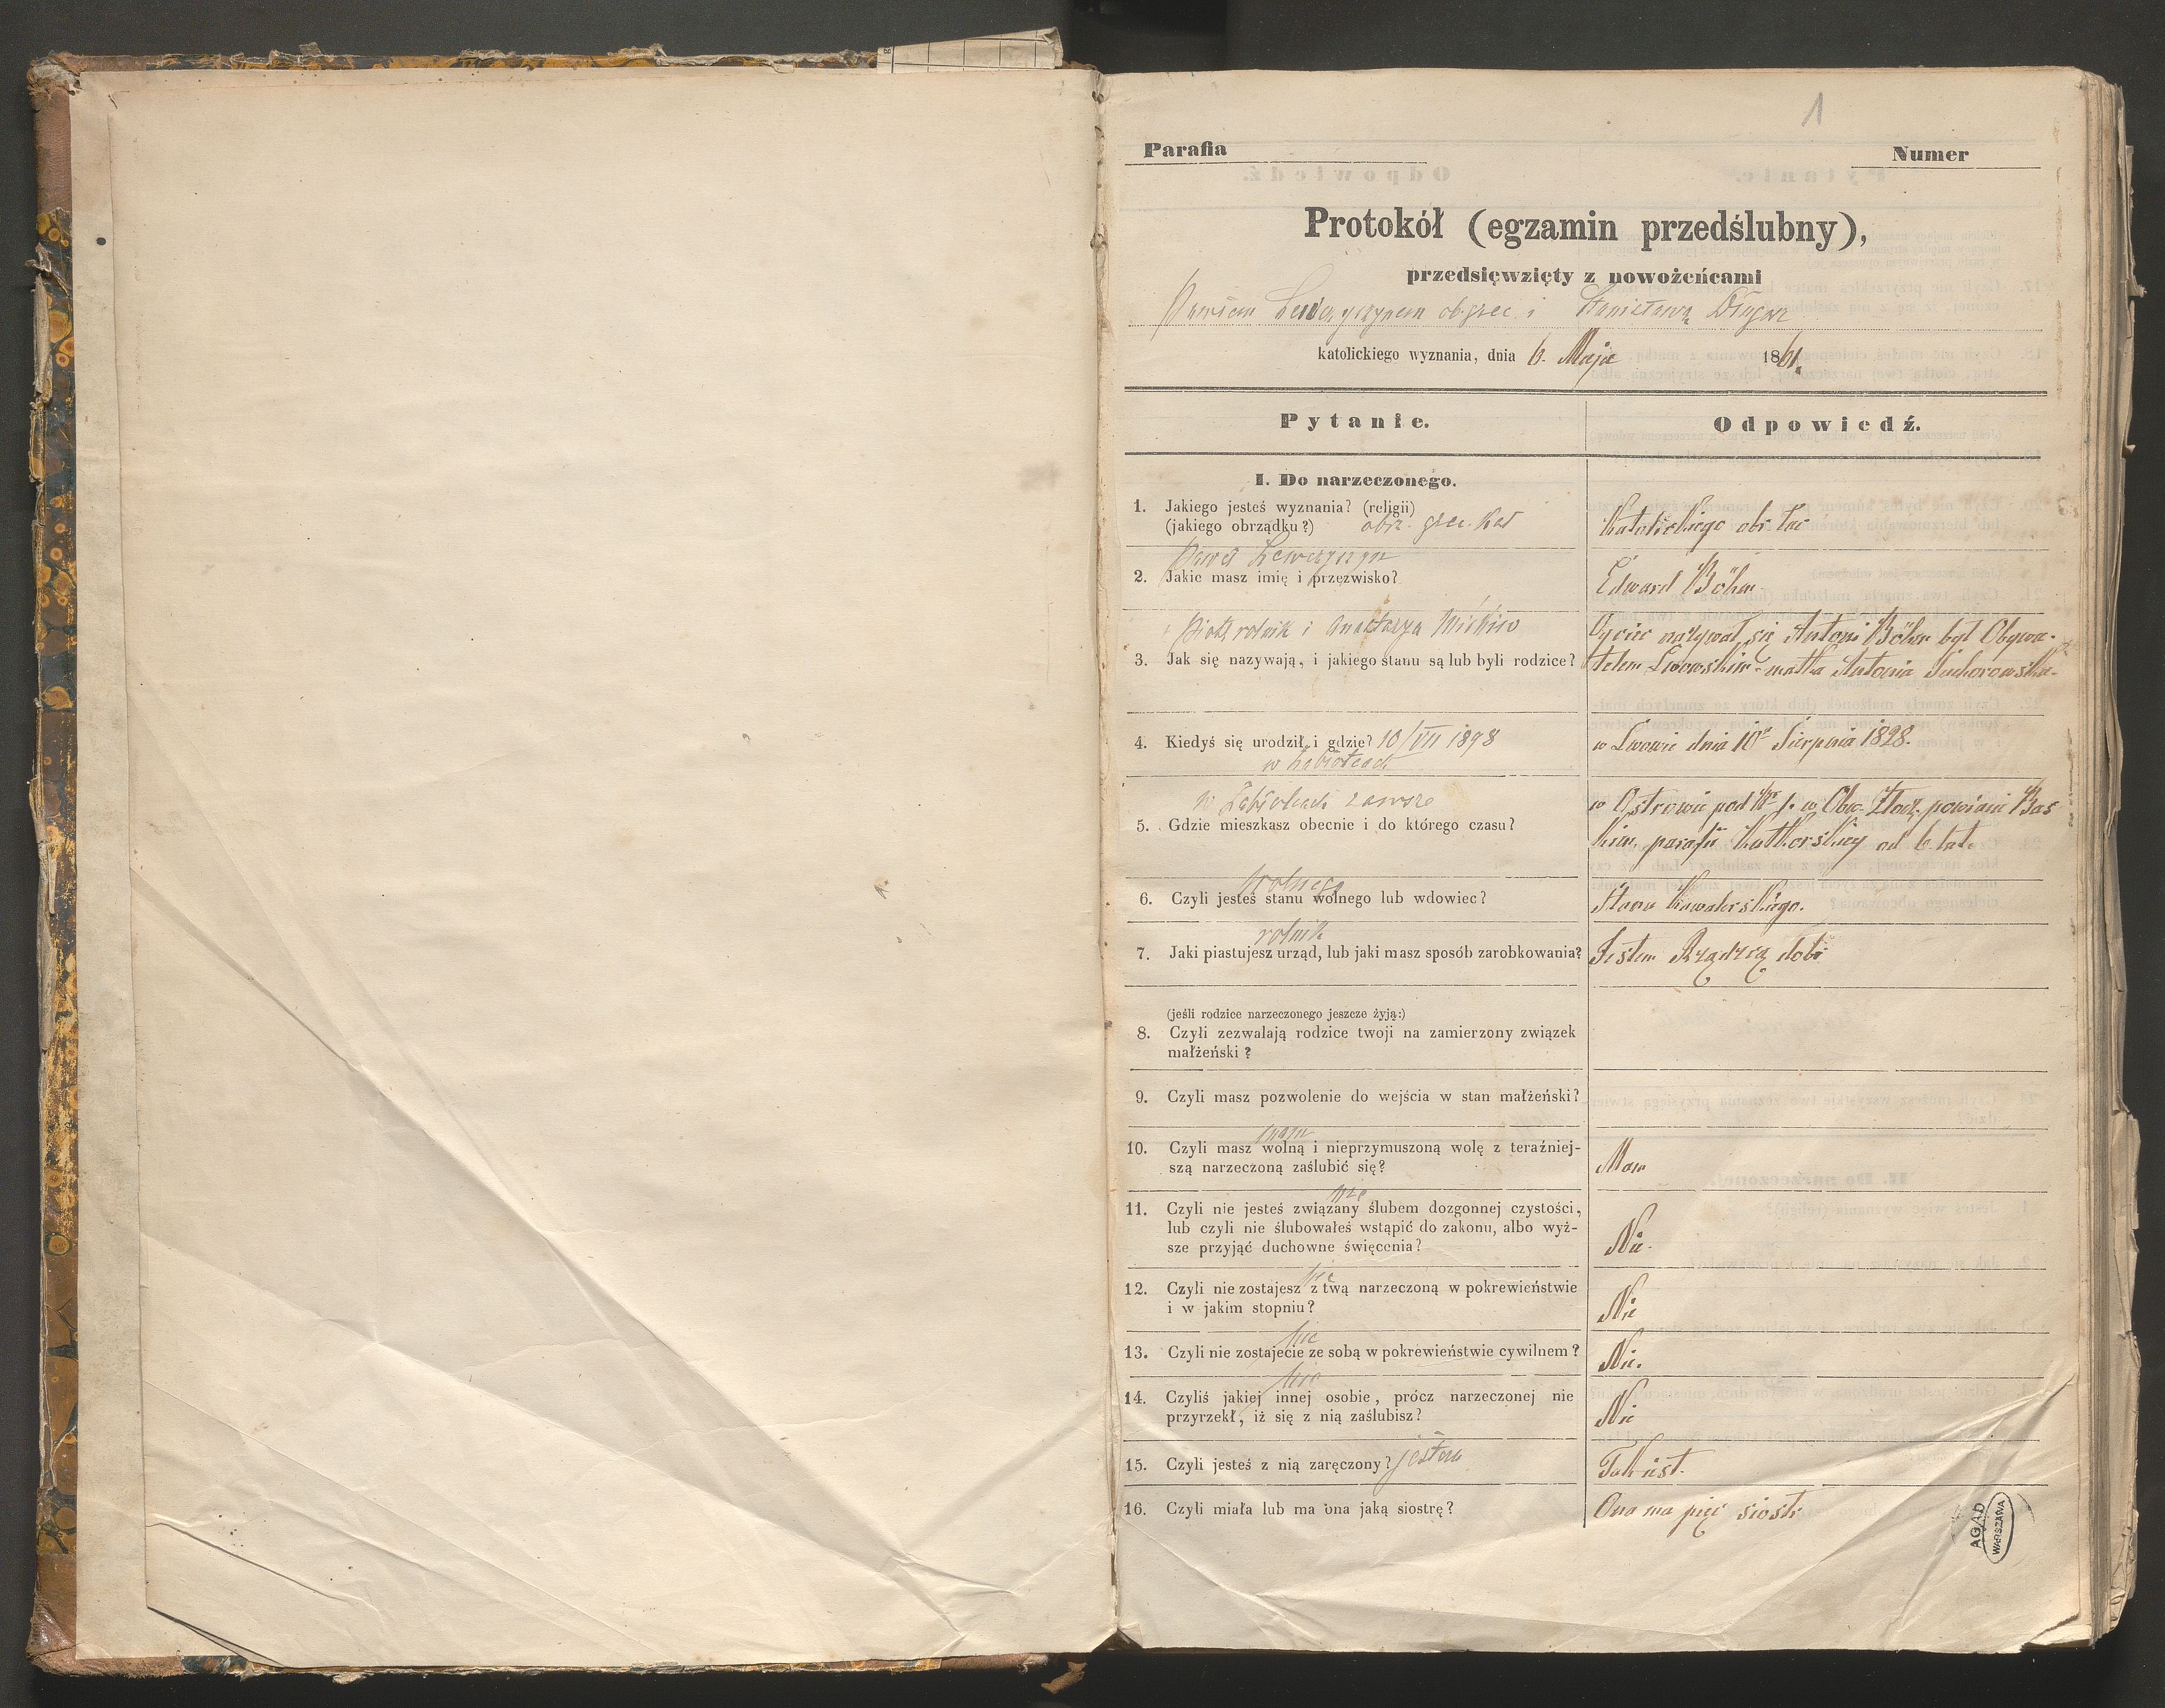 1
Parafia
Numer
Protokół (egzamin przedślubny),
przedsięwzięty z nowożeńcami
Pawłem Lewczyszynem ob. grec. i Stanisławą Długosz
katolickiego wyznania, dnia 6. Maja 1861.
Pytanie.
Odpowiedź.
I. Do narzeczonego.
1. Jakiego jesteś wyznania? (religii)
(jakiego obrządku?) obrz. grec. kat
Katolickiego obr. łac
Paweł Lewczyszyn
2. Jakie masz imię i przęzwisko?
Edward Böhm
Piotr rolnik i Anastazya
3. Jak się nazywają, i jakiego stanu są lub byli rodzice?
Ojciec nazywał się Antoni Böhm był Obywa-
telem Lwowskim - matka Antonia Suchorowska.
4. Kiedyś się urodził i gdzie? 10/VII 1898
w
w Lwowie dnia 10o Sierpnia 1828.
w zawsze
5. Gdzie mieszkasz obecnie i do którego czasu?
w Ostrowie pod No 1. w Obw. Złocz. powiecie Bus
kim, parafii Kutkorskiej od 6. lat.
wolnego
6. Czyli jesteś stanu wolnego lub wdowiec?
Stanu kawalerskiego.
rolnik
7. Jaki piastujesz urząd, lub jaki masz sposób zarobkowania?
Jestem Rządzcą dóbr
(jeśli rodzice narzeczonego jeszcze żyją:)
8. Czyłi zezwalają rodzice twoji na zamierzony związek
małżeński?
9. Czyli masz pozwolenie do wejścia w stan małżeński?
mam
10. Czyli masz wolną i nieprzymuszoną wolę z teraźniej-
szą narzeczoną zaślubić się?
Mam
nie
11. Czyli nie jesteś związany ślubem dozgonnej czystości,
lub czyli nie ślubowałeś wstąpić do zakonu, albo wyż-
sze przyjąć duchowne święcenia?
Nie.
nie
12. Czyli nie zostajesz z twą narzeczoną w pokrewieństwie
i w jakim stopniu?
Nie
nie
13. Czyli nie zostajecie ze sobą w pokrewieństwie cywilnem?
Nie.
nie
14. Czyliś jakiej innej osobie, prócz narzeczonej nie
przyrzekł, iż się z nią zaślubisz?
Nie
15. Czyli jesteś z nią zaręczony? jestem
Tak jest.
16. Czyli miała lub ma ona jaką siostrę?
Ona ma pięć sióstr
AGAD
WARSZAWA